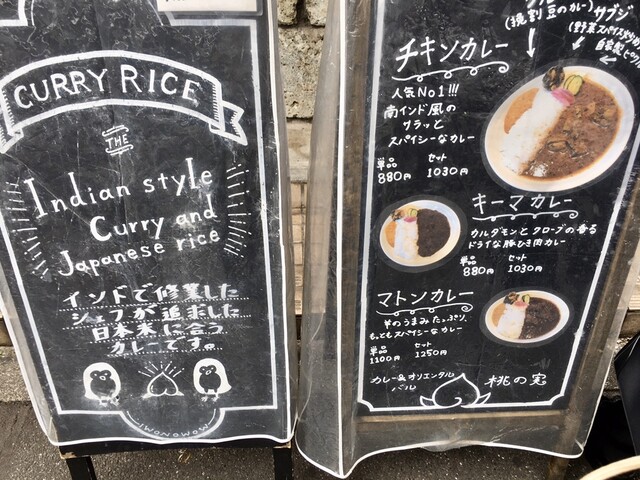 CURRY RICE
THE
Indian style
Curry and
Japanese rice
インドで修業した
シェフが追求した
日本米に合う
カレーです。
MOMONOMI
(挽割豆のカレー)
サブジ
(野菜スパイス炒め
自家製ピクルス
チキンカレー
人気No1!!!
南インド風の
サラッと
スパイシーなカレー
単品 セット
880円 1030円
キーマカレー
カルダモンとクローブの香る
ドライな豚ひき肉カレー
単品 セット
880円 1030円
マトンカレー
羊のうまみたっぷり、
もっともスパイシーなカレー
単品 セット
1100円 1250円
カレー&オリエンタル
バル
桃の実